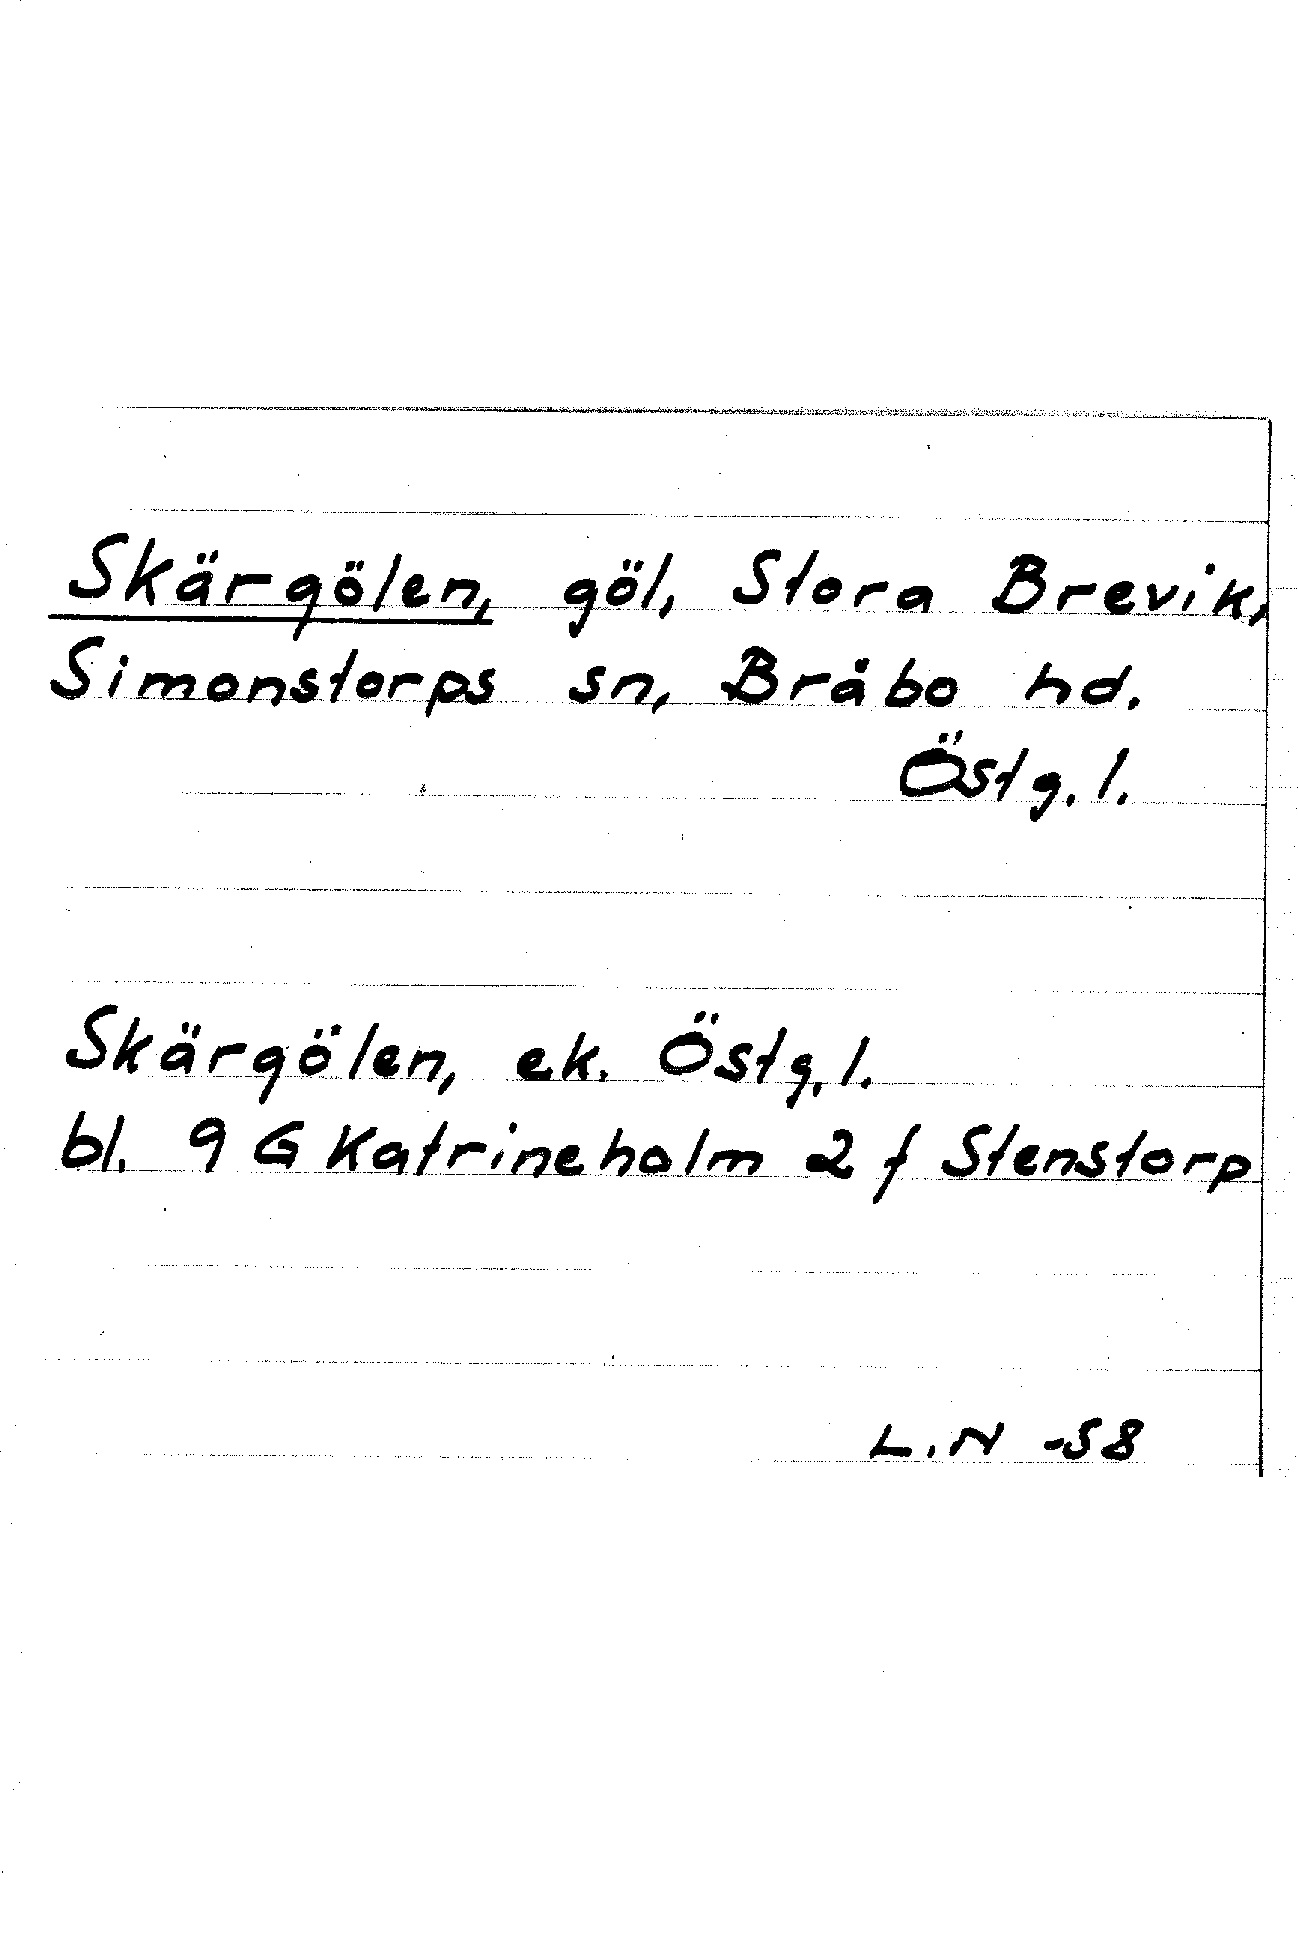 Skärgölen, göl, Stora Brevik,
Simonstorps sn, Bråbo hd.
Östg. l.
Skärgölen, ek. Östg. l.
bl. 9 G Katrineholm 2 f Stenstorp
L.N -58